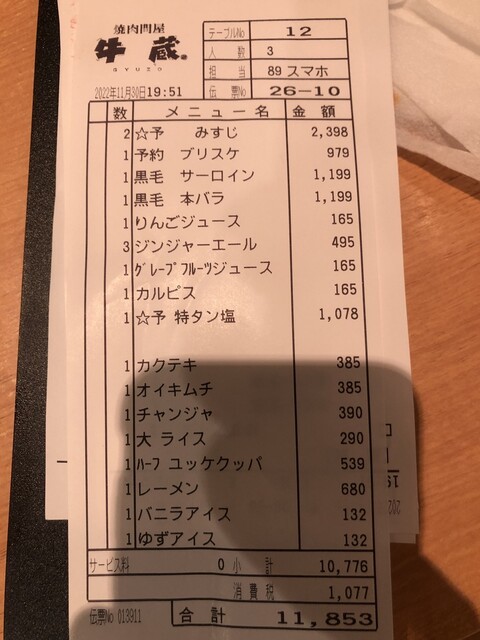 焼肉問屋
牛蔵
GYUZO
2022年11月30日19:51
テーブルNo 12
人数 3
担当 89 スマホ
伝票No 26-10
数 メニュー名 金額
2 ☆予 みすじ 2,398
1 予約 ブリスケ 979
1 黒毛 サーロイン 1,199
1 黒毛 本バラ 1,199
1 りんごジュース 165
3 ジンジャーエール 495
1 グレープフルーツジュース 165
1 カルピス 165
1 ☆予 特タン塩 1,078
1 カクテキ 385
1 オイキムチ 385
1 チャンジャ 390
1 大 ライス 290
1 ハーフ ユッケクッパ 539
1 レーメン 680
1 バニラアイス 132
1 ゆずアイス 132
サービス料 0 小計 10,776
消費税 1,077
伝票No 013911 合計 11,853